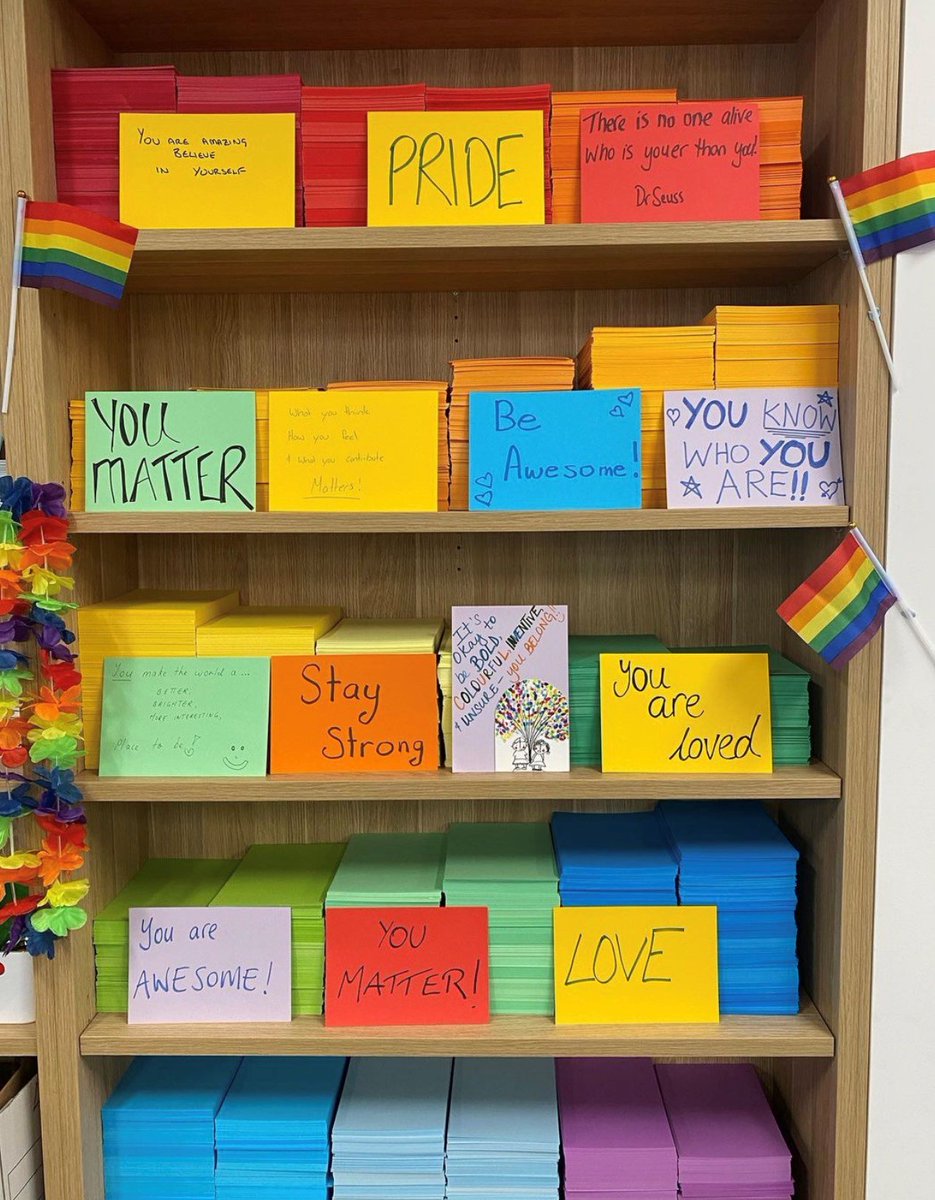 YOU ARE AMAZING
BELIEVE
IN YOURSELF
PRIDE
There is no one alive
who is youer than you!
Dr Seuss
YOU
MATTER
What you think
How you feel
& what you contribute
Matters!
Be
Awesome!
YOU KNOW
WHO YOU
ARE!!
You make the world a...
BETTER,
BRIGHTER,
MORE INTERESTING,
Place to be!
Stay
Strong
It's
okay to
be BOLD,
COLOURFUL, INVENTIVE,
& UNSURE - YOU BELONG!!
You
are
loved
You are
AWESOME!
YOU
MATTER!
LOVE